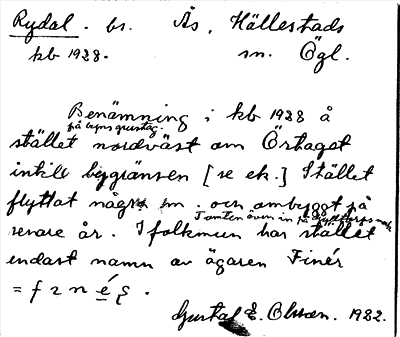 Rydal. br. Ås, Hällestads
kb 1928. sn. Ögl.
Benämning i kb 1928 å
på byns grustag.
stället nordväst om Örtaget
intill bygränsen [se ek.] Stället
flyttat några m. och ombyggt på
Tomten även in på
senare år. I folkmun har stället
endast namn av ägaren Finér
= f 2 n é ς .
Gustaf E. Olsson. 1982.